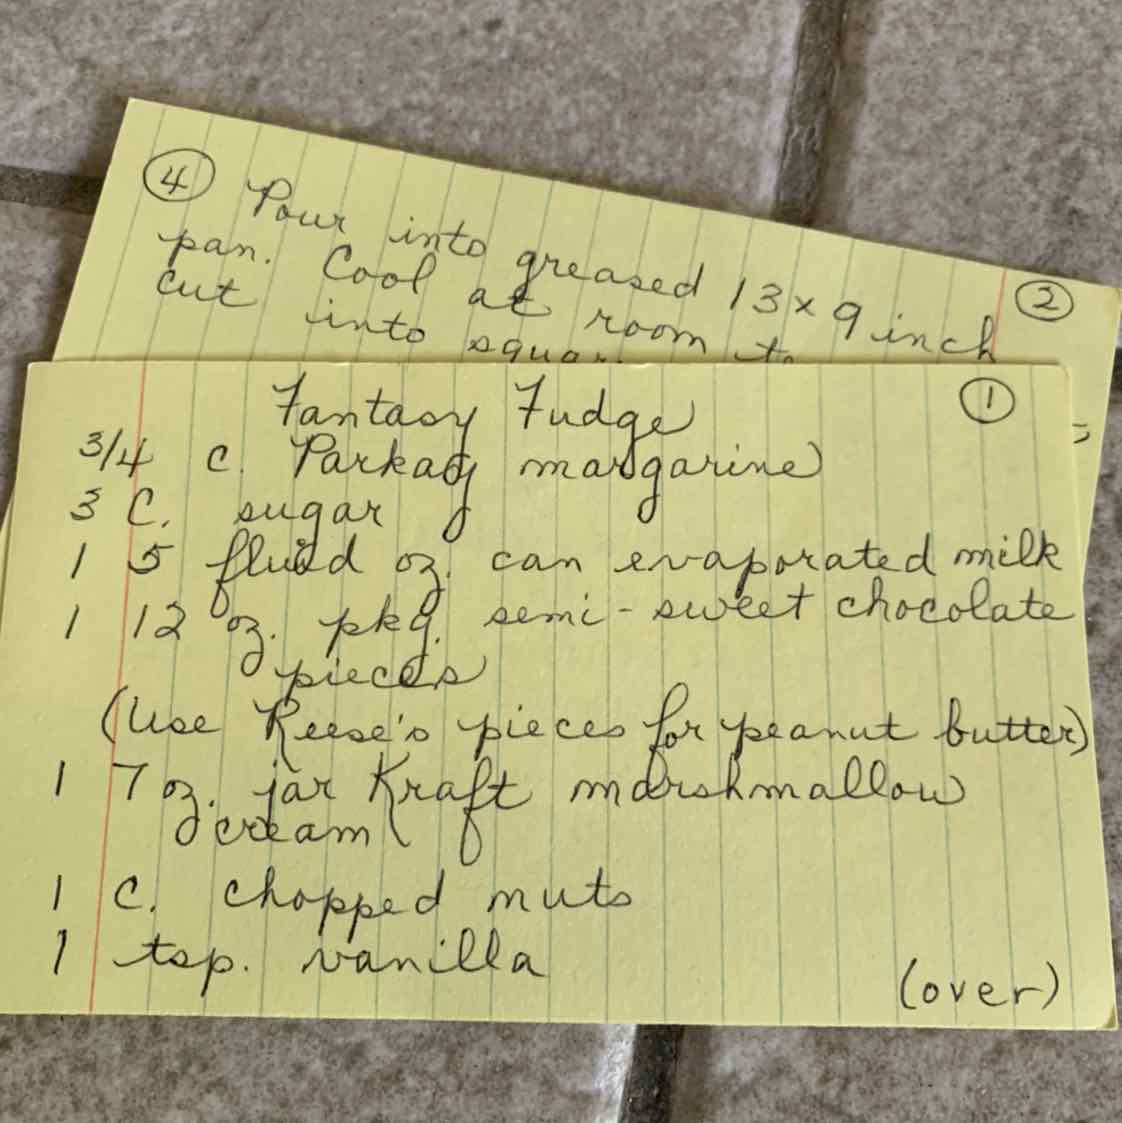 ④ Pour into greased 13 x 9 inch ②
pan. Cool at room
cut into
Fantasy Fudge ①
3/4 c. Parkay margarine
3 C. sugar
1 5 fluid oz. can evaporated milk
1 12 oz. pkg. semi-sweet chocolate
pieces
(Use Reese's pieces for peanut butter)
1 7 oz. jar Kraft marshmallow
cream
1 C. chopped nuts
1 tsp. vanilla
(over)